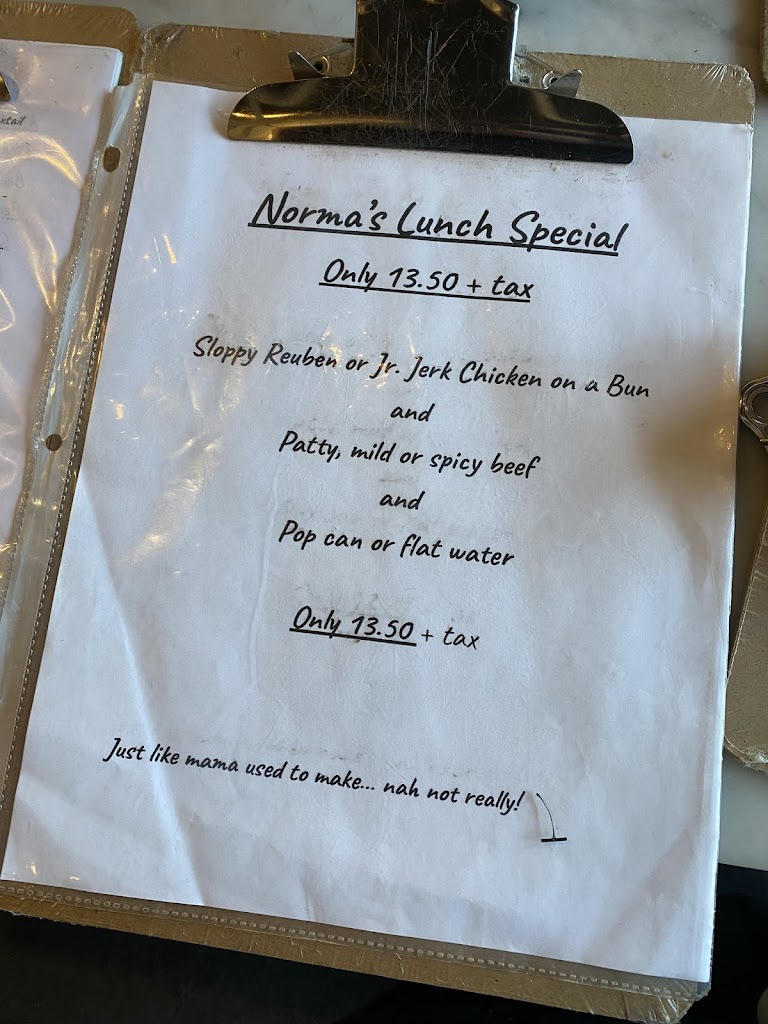 Norma's Lunch Special
Only 13.50 + tax
Sloppy Reuben or Jr. Jerk Chicken on a Bun
and
Patty, mild or spicy beef
and
Pop can or flat water
Only 13.50 + tax
Just like mama used to make... nah not really!